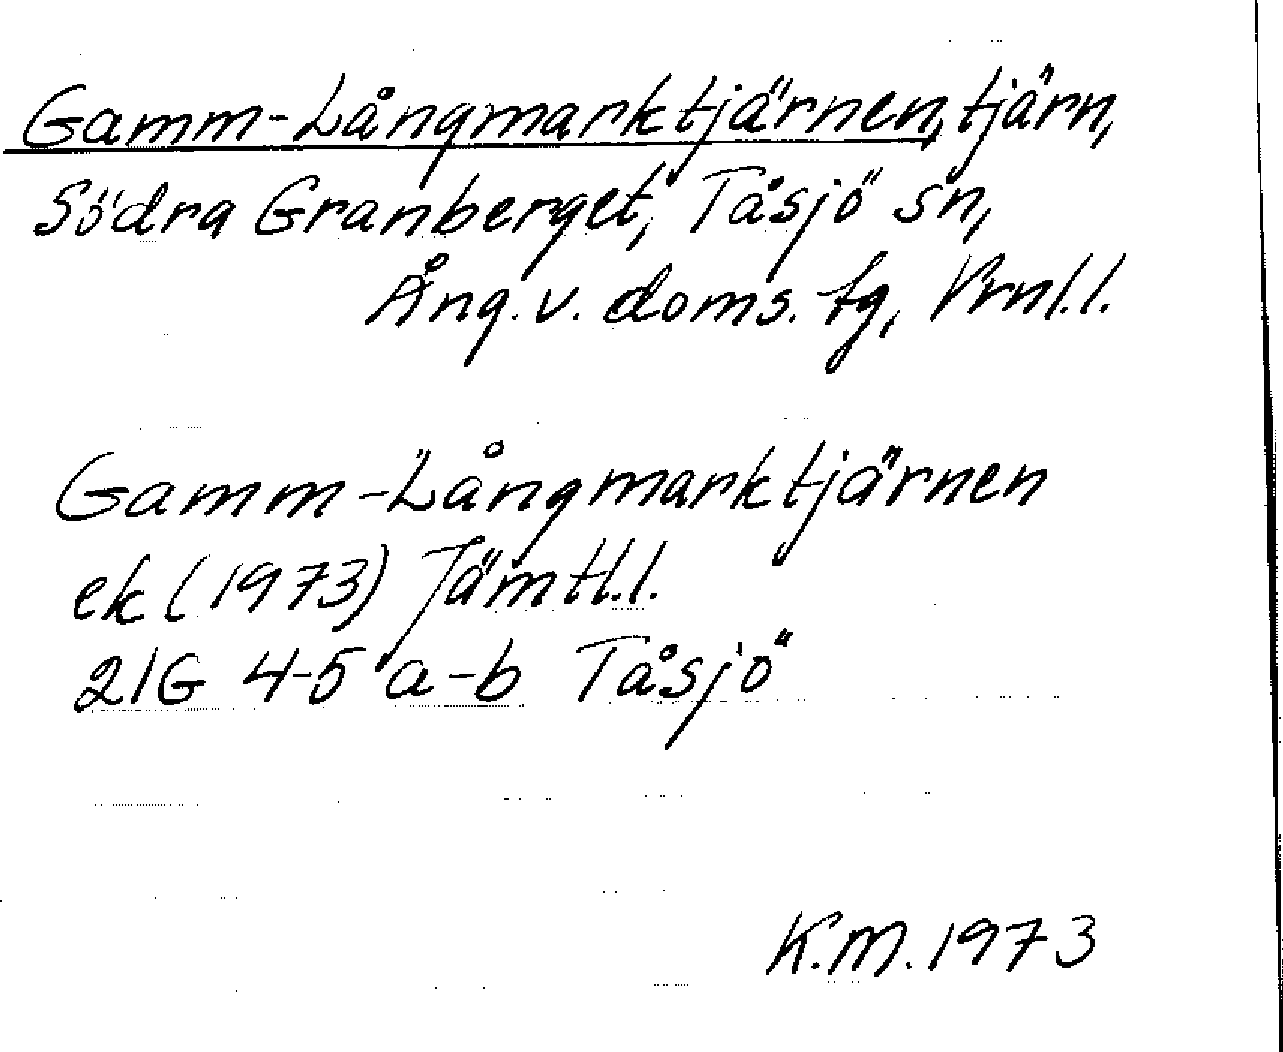 Gamm-Långmarktjärnen, tjärn,
Södra Granberget, Tåsjö sn,
Ång. v. doms. tg, Vrnl. l.
Gamm-Långmarktjärnen
ek (1973) Jämtl. l.
21G 4-5 a-b Tåsjö
K.M. 1973